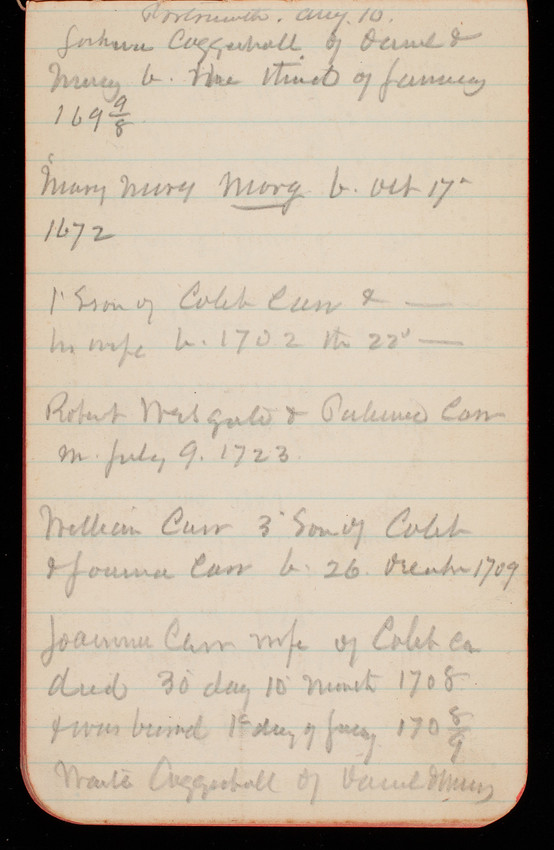 Portsmouth. Aug. 10.
Joshua Coggeshall of Daniel &
Mercy b. the third of January
169 9/8
Mary Mercy Morg b. Oct 17
1672
1 Son of Caleb Carr & —
his wife b. 1702 the 22d —
Robert Westgate & Patience Carr
m. July 9. 1723
William Carr 3d Son of Caleb
& Joanna Carr b. 26. December 1709
Joanna Carr wife of Caleb Ca
died 30 day 10 month 1708
& was buried 1st day of Jany 170 8/9
Coggeshall of Daniel & Mercy